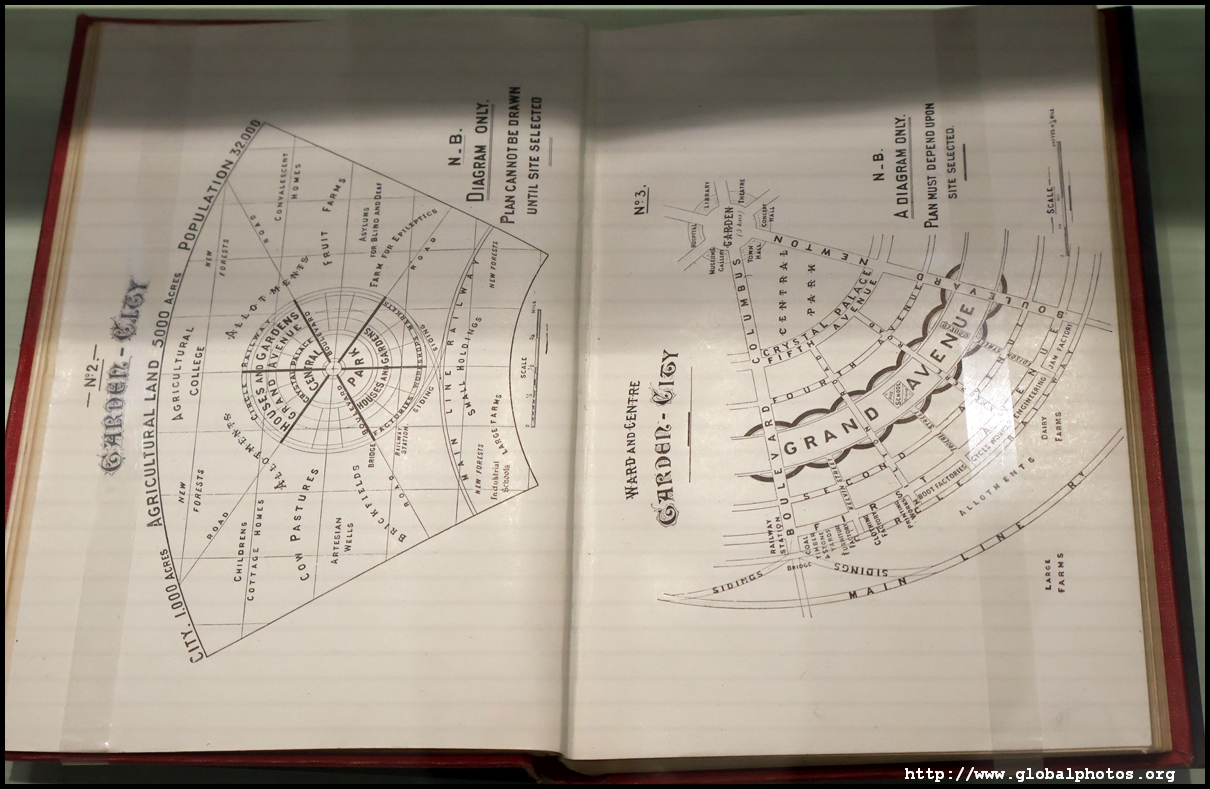 — Nº 2. —
GARDEN-CITY
CITY. 1,000 ACRES
AGRICULTURAL LAND 5000 ACRES
POPULATION 32,000
NEW
FORESTS
ROAD
AGRICULTURAL
COLLEGE
NEW
FORESTS
ROAD
CONVALESCENT
HOMES
CHILDRENS
COTTAGE HOMES
ALLOTMENTS
ALLOTMENTS
FRUIT FARMS
COW PASTURES
ARTESIAN
WELLS
BRICKFIELDS
ROAD
ASYLUMS
FOR BLIND AND DEAF
FARM FOR EPILEPTICS
ROAD
CIRCLE RAILWAY
HOUSES AND GARDENS
GRAND AVENUE
CRYSTAL PALACE
CENTRAL
PARK
BOULEVARD
BOULEVARD
HOUSES AND GARDENS
FACTORIES
WORKSHOPS
MARKETS
SIDING
SIDING
BRIDGE
RAILWAY
STATION
MAIN LINE RAILWAY
SMALL HOLDINGS
NEW FORESTS
NEW FORESTS
LARGE FARMS
Industrial
Schools
SCALE
MILE
N.B.
DIAGRAM ONLY.
PLAN CANNOT BE DRAWN
UNTIL SITE SELECTED
Nº 3.
WARD AND CENTRE
GARDEN-CITY
LIBRARY
THEATRE
HOSPITAL
GARDEN
CONCERT
HALL
MUSEUM &
GALLERY
TOWN
HALL
BOULEVARD
COLUMBUS
CENTRAL
PARK
CRYSTAL PALACE
FIFTH AVENUE
FOURTH AVENUE
GRAND AVENUE
SCHOOL
SECOND
FIRST
AVENUE
NEWTON
BOULEVARD
EDISON
RAILWAY
STATION
COAL
TIMBER
& STONE
YARDS
FURNITURE
FACTORY
CLOTHING
FACTORY
PRINTING
WORKS
BOOT FACTORIES
CYCLE WORKS
ENGINEERING
JAM FACTORY
DAIRY
FARMS
ALLOTMENTS
BRIDGE
SIDINGS
SIDINGS
MAIN LINE
LARGE
FARMS
N.B.
A DIAGRAM ONLY.
PLAN MUST DEPEND UPON
SITE SELECTED.
SCALE
http://www.globalphotos.org